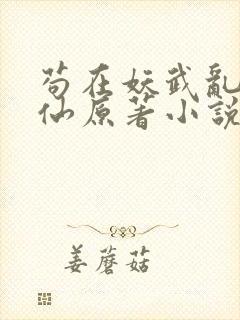 苟在妖武亂
仙原著小說
姜蘑菇